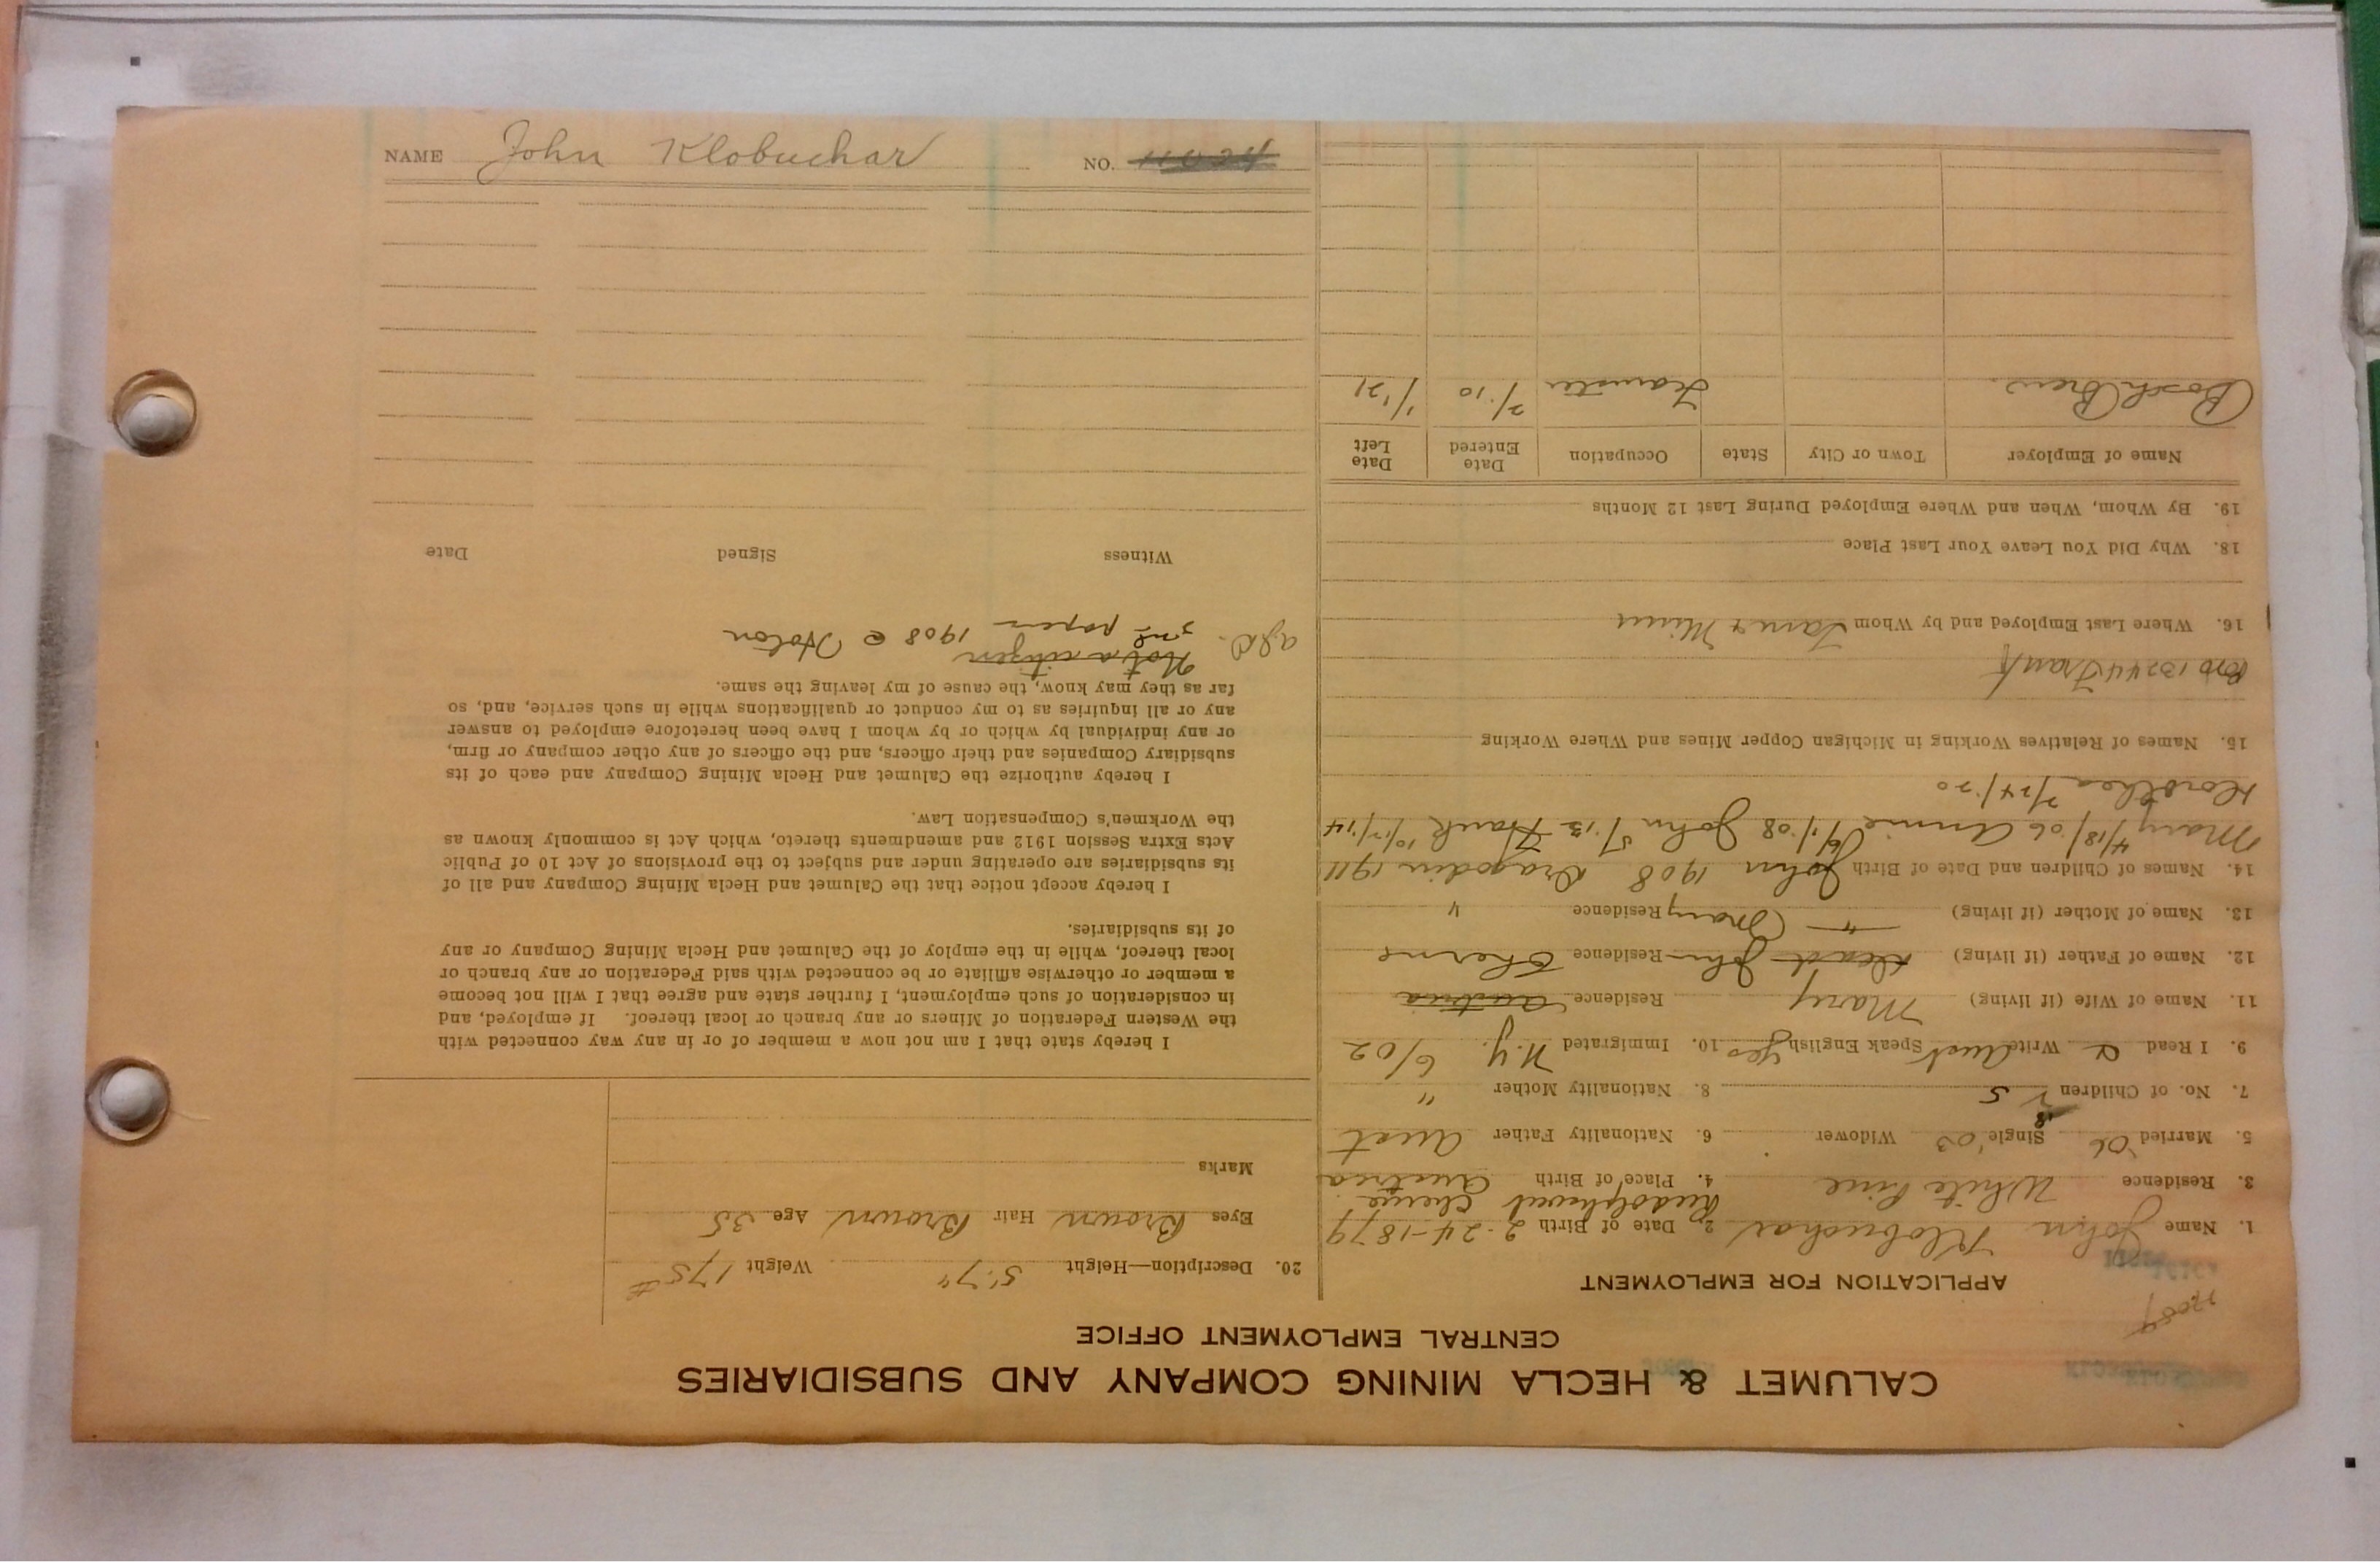 CALUMET & HECLA MINING COMPANY AND SUBSIDIARIES
CENTRAL EMPLOYMENT OFFICE
APPLICATION FOR EMPLOYMENT
1. Name John Klobuchar 2. Date of Birth 2-24-1879
3. Residence White Pine 4. Place of Birth Austria
5. Married '06 Single '03 Widower 6. Nationality Father Aust
7. No. of Children 5 8. Nationality Mother "
9. I Read & Write Aust Speak English Yes 10. Immigrated N.Y. 6/02
11. Name of Wife (if living) Mary Residence Austria
12. Name of Father (if living) Dead John Residence
13. Name of Mother (if living) " Mary Residence "
14. Names of Children and Date of Birth John 1908 Dragodin 1911
Mary 4/18/06 Annie 6/1/08 John 5/13 Frank 10/12/14
Dorothea 2/24/20
15. Names of Relatives Working in Michigan Copper Mines and Where Working
Bro 13244 Frank
16. Where Last Employed and by Whom
18. Why Did You Leave Your Last Place
19. By Whom, When and Where Employed During Last 12 Months
Name of Employer Town or City State Occupation Date Entered Date Left
Bosch Brew. Teamster 2/10 1/21
20. Description—Height 5'.7" Weight 175#
Eyes Brown Hair Brown Age 35
Marks
I hereby state that I am not now a member of or in any way connected with
the Western Federation of Miners or any branch or local thereof. If employed, and
in consideration of such employment, I further state and agree that I will not become
a member or otherwise affiliate or be connected with said Federation or any branch or
local thereof, while in the employ of the Calumet and Hecla Mining Company or any
of its subsidiaries.
I hereby accept notice that the Calumet and Hecla Mining Company and all of
its subsidiaries are operating under and subject to the provisions of Act 10 of Public
Acts Extra Session 1912 and amendments thereto, which Act is commonly known as
the Workmen's Compensation Law.
I hereby authorize the Calumet and Hecla Mining Company and each of its
subsidiary Companies and their officers, and the officers of any other company or firm,
or any individual by which or by whom I have been heretofore employed to answer
any or all inquiries as to my conduct or qualifications while in such service, and, so
far as they may know, the cause of my leaving the same.
Not a citizen
papers 1908 @ Hoton
Witness Signed Date
NAME John Klobuchar NO.